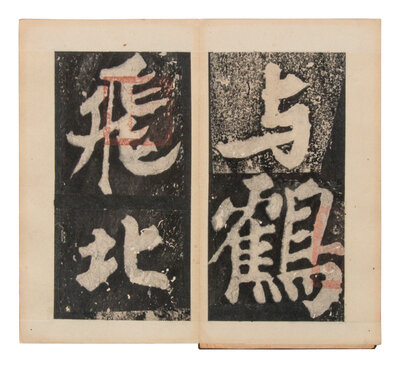 与鶴
飛北